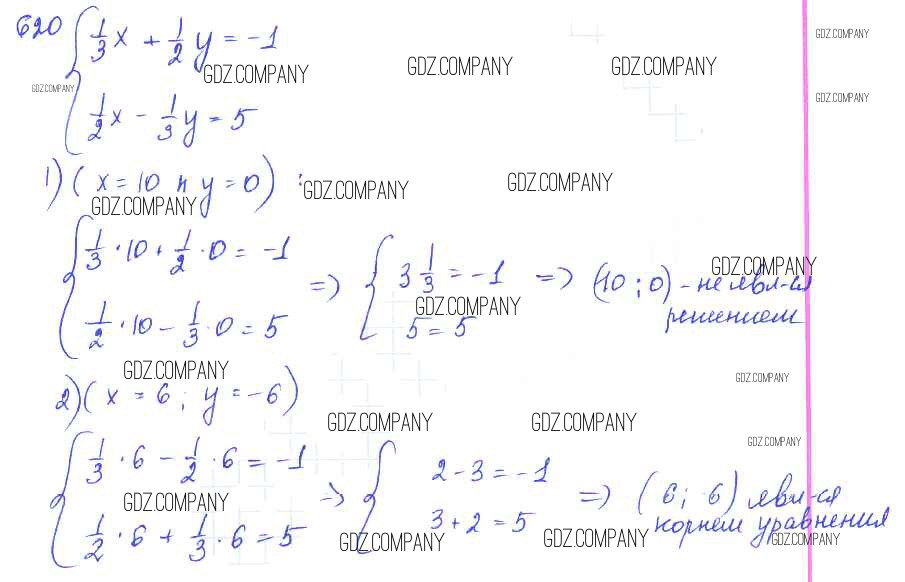 620 { 1/3 x + 1/2 y = -1
GDZ.COMPANY GDZ.COMPANY GDZ.COMPANY GDZ.COMPANY
GDZ.COMPANY GDZ.COMPANY
1/2 x - 1/3 y = 5
1) ( x = 10 и y = 0 ) :
GDZ.COMPANY GDZ.COMPANY GDZ.COMPANY
{ 1/3 · 10 + 1/2 · 0 = -1
1/2 · 10 - 1/3 · 0 = 5
=> { 3 1/3 = -1
5 = 5
=> (10 ; 0) - не явл-ся
решением
GDZ.COMPANY GDZ.COMPANY
GDZ.COMPANY GDZ.COMPANY
2) ( x = 6 ; y = -6 )
GDZ.COMPANY GDZ.COMPANY GDZ.COMPANY
{ 1/3 · 6 - 1/2 · 6 = -1
1/2 · 6 + 1/3 · 6 = 5
-> { 2 - 3 = -1
3 + 2 = 5
=> ( 6 ; 6 ) явл-ся
корнем уравнения
GDZ.COMPANY GDZ.COMPANY GDZ.COMPANY GDZ.COMPANY